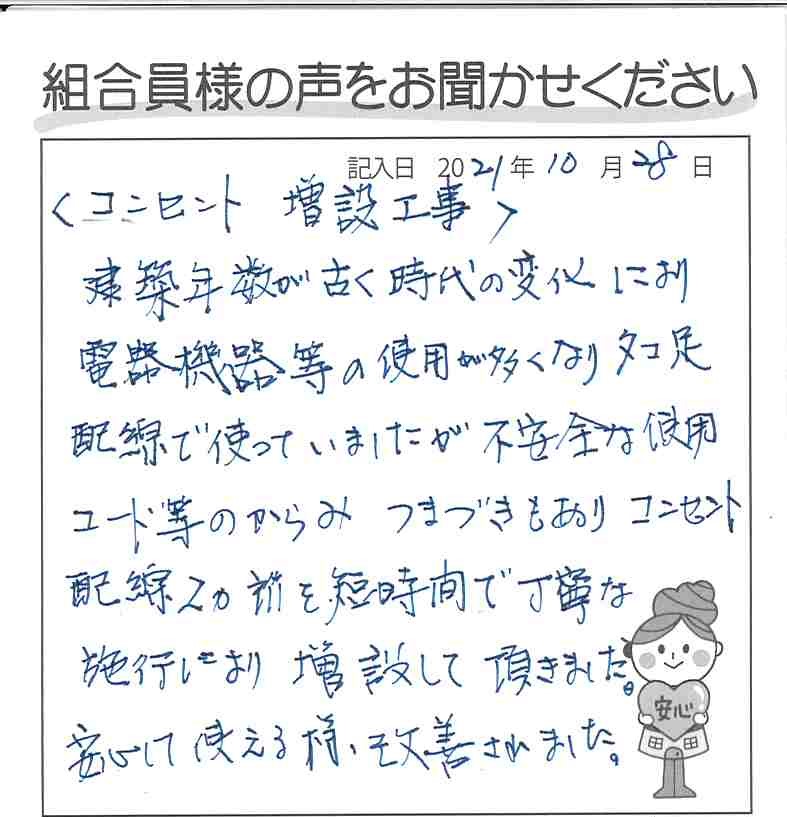 組合員様の声をお聞かせください
記入日 2021年10月28日
<コンセント 増設工事>
建築年数が古く時代の変化により
電器機器等の使用が多くなりタコ足
配線で使っていましたが不安全な使用
コード等のからみ つまづきもありコンセント
配線2カ所を短時間で丁寧な
施行により 増設して頂きました。
安心して使える様、改善されました。
安心